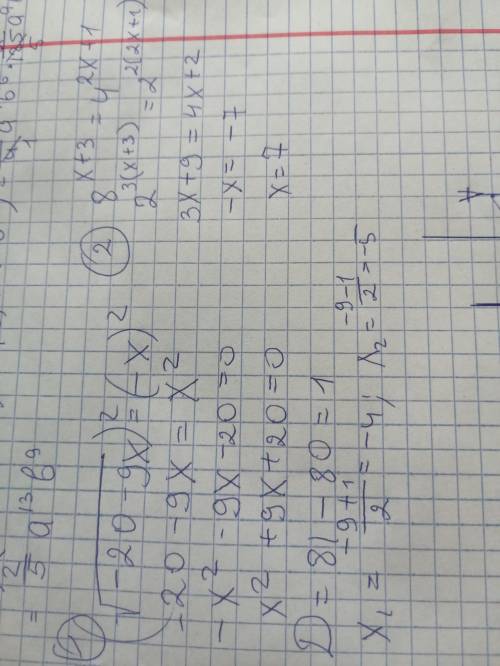 = 2/5 a¹³ b⁹
① (√(-20-9x))² = (-x)²
-20-9x = x²
-x²-9x-20=0
x²+9x+20=0
D = 81-80=1
x₁ = (-9+1)/2 = -4; x₂ = (-9-1)/2 = -5
② 8^(x+3) = 4^(2x+1)
2^(3(x+3)) = 2^(2(2x+1))
3x+9=4x+2
-x = -7
x=7